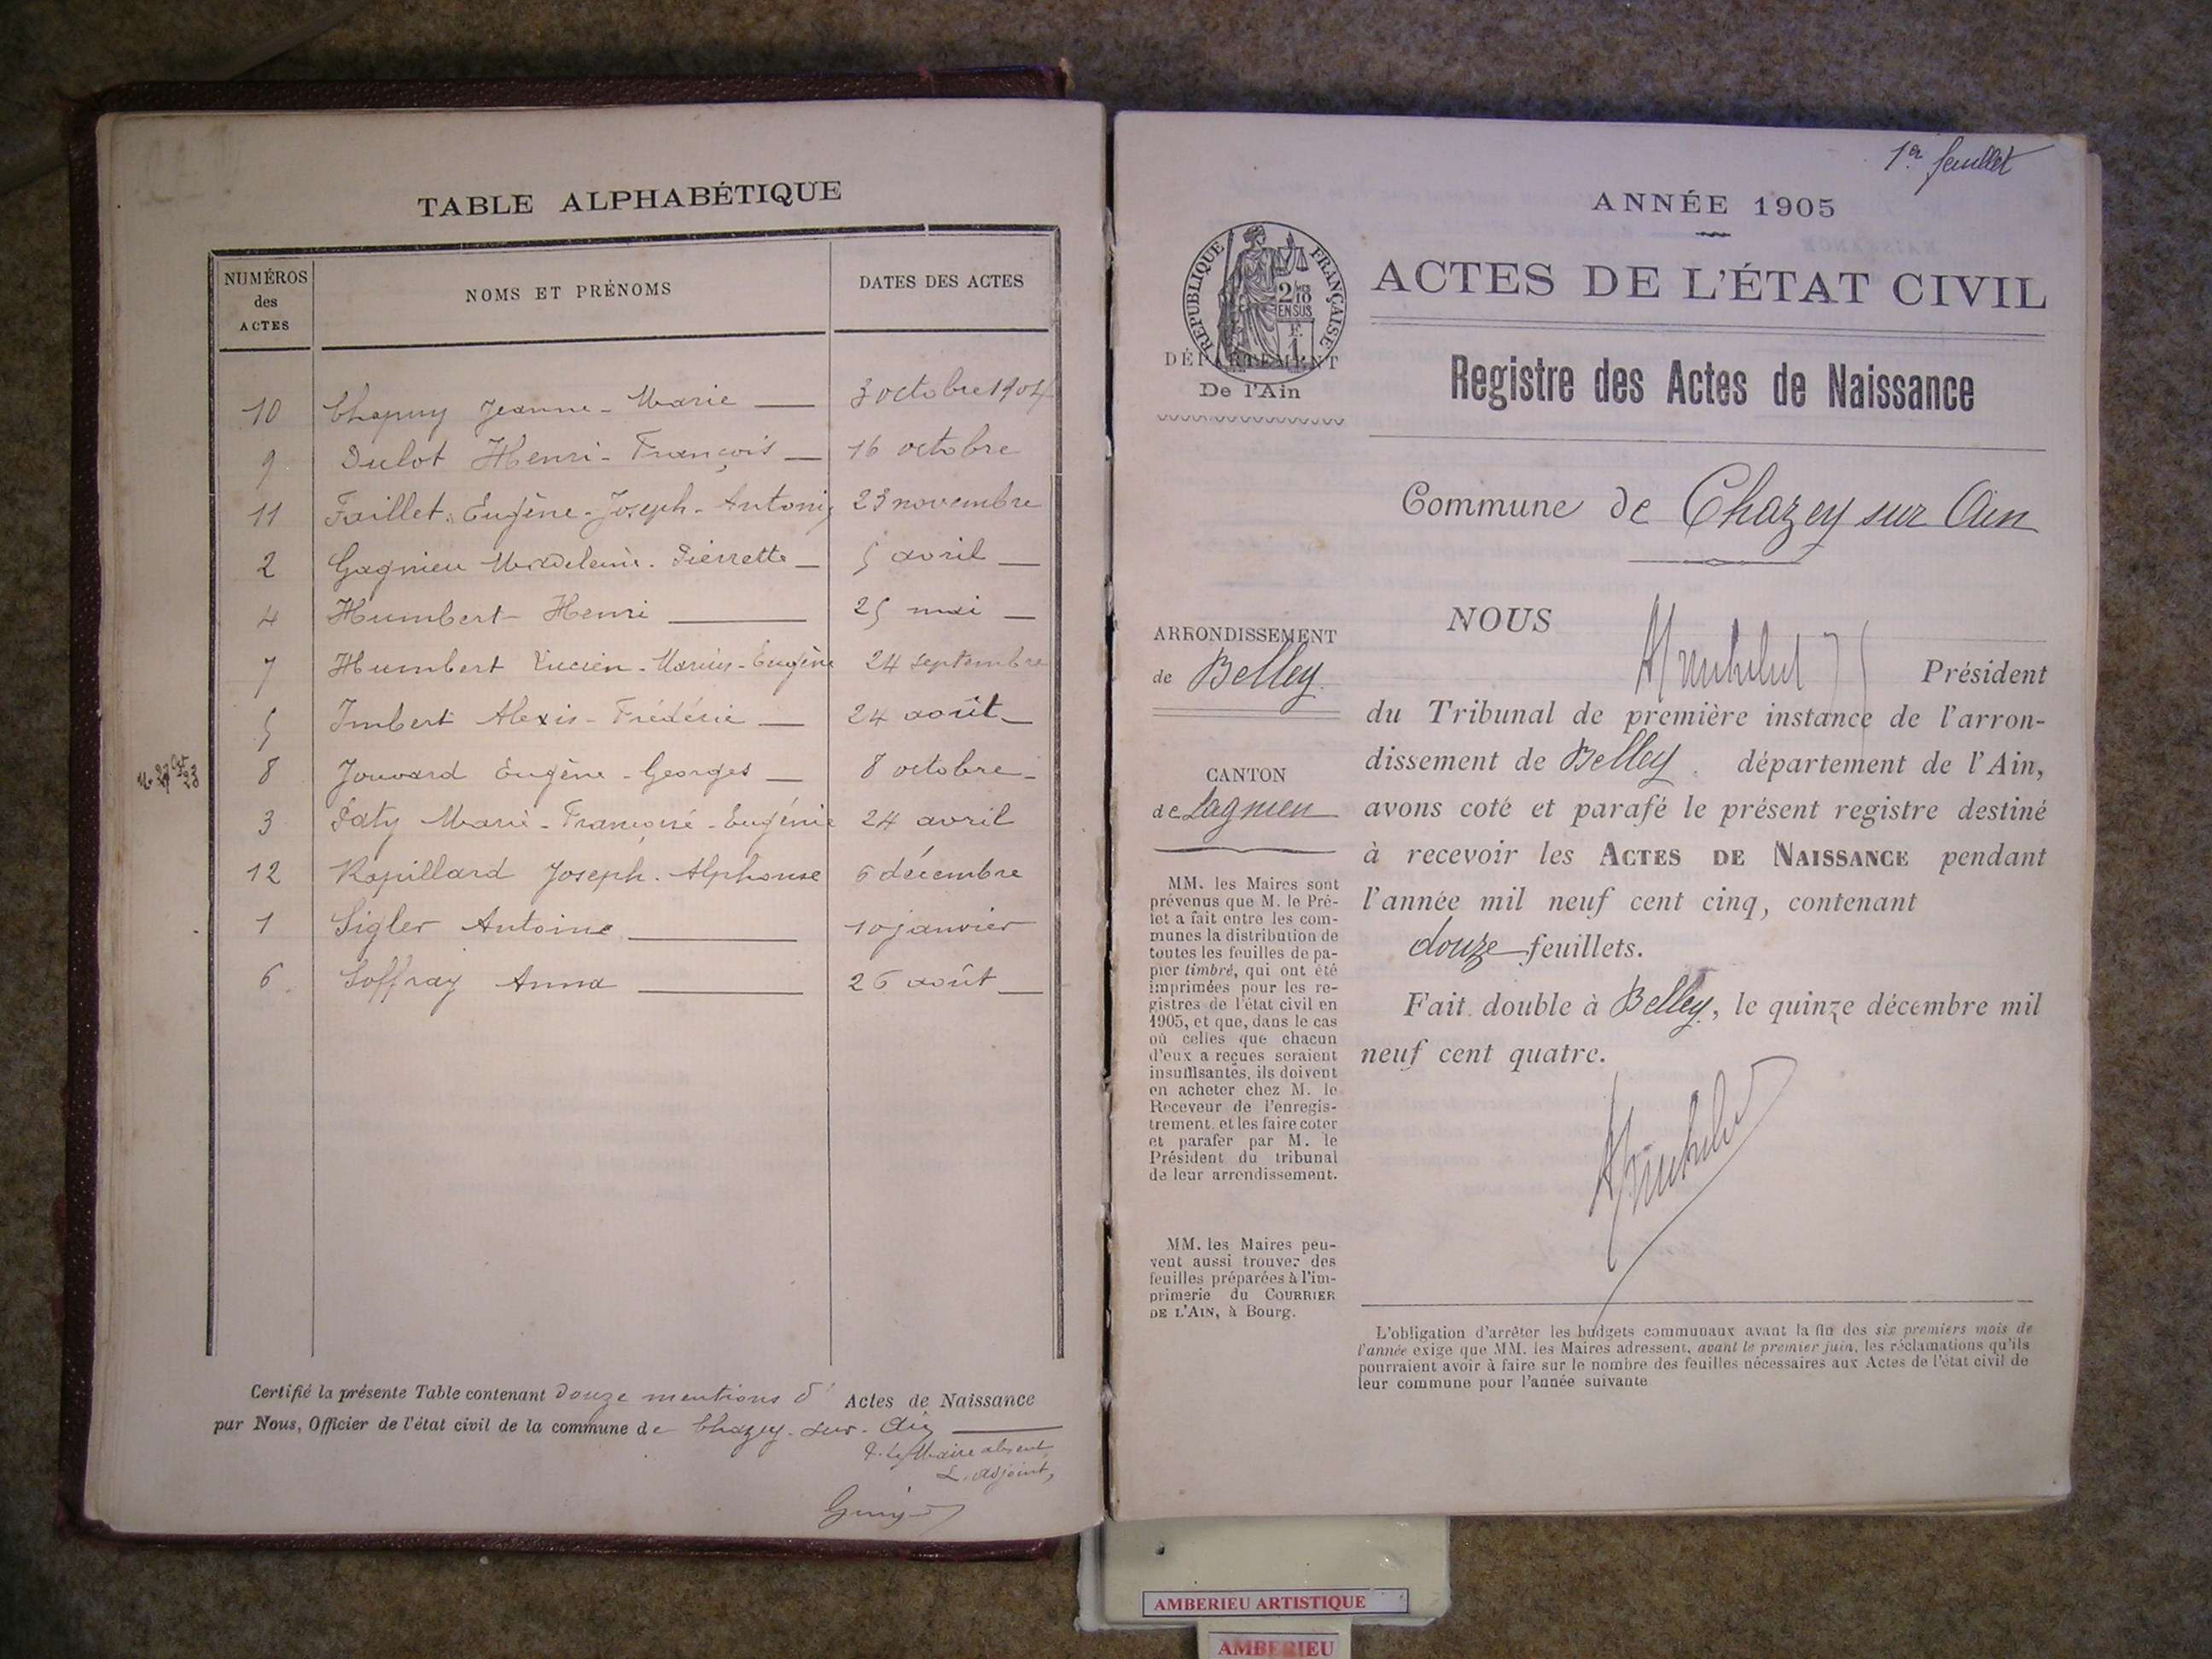 TABLE ALPHABÉTIQUE
NUMÉROS des ACTES
NOMS ET PRÉNOMS
DATES DES ACTES
10 Chapuy Jeanne-Marie 3 octobre 1904
9 Dulot Henri-François 16 octobre
11 Faillet Eugène-Joseph-Antoni 23 novembre
2 Gagnieu Madeleine-Pierrette 5 avril
4 Humbert Henri 25 mai
7 Humbert Lucien-Marius-Eugène 24 septembre
5 Imbert Alexis-Frédéric 24 août
8 Jouvard Eugène-Georges 8 octobre
3 Paty Marie-Françoise-Eugénie 24 avril
12 Rapillard Joseph-Alphonse 6 décembre
1 Sigler Antoine 10 janvier
6 Soffray Anna 26 août
Certifié la présente Table contenant douze mentions d' Actes de Naissance
par Nous, Officier de l'état civil de la commune de Chazey-sur-Ain
P. le Maire absent
L'adjoint,
1er feuillet
ANNÉE 1905
ACTES DE L'ÉTAT CIVIL
RÉPUBLIQUE FRANÇAISE
2/10 EN SUS
DÉPARTEMENT
De l'Ain
Registre des Actes de Naissance
Commune de Chazey sur Ain
ARRONDISSEMENT
de Belley
CANTON
de Lagnieu
MM. les Maires sont
prévenus que M. le Pré-
fet a fait entre les com-
munes la distribution de
toutes les feuilles de pa-
pier timbré, qui ont été
imprimées pour les re-
gistres de l'état civil en
1905, et que, dans le cas
où celles que chacun
d'eux a reçues seraient
insuffisantes, ils doivent
en acheter chez M. le
Receveur de l'enregis-
trement. et les faire coter
et parafer par M. le
Président du tribunal
de leur arrondissement.
MM. les Maires peu-
vent aussi trouver des
feuilles préparées à l'im-
primerie du COURRIER
DE L'AIN, à Bourg.
NOUS
Président
du Tribunal de première instance de l'arron-
dissement de Belley. département de l'Ain,
avons coté et parafé le présent registre destiné
à recevoir les ACTES DE NAISSANCE pendant
l'année mil neuf cent cinq, contenant
douze feuillets.
Fait double à Belley, le quinze décembre mil
neuf cent quatre.
L'obligation d'arrêter les budgets communaux avant la fin des six premiers mois de
l'année exige que MM. les Maires adressent, avant le premier juin, les réclamations qu'ils
pourraient avoir à faire sur le nombre des feuilles nécessaires aux Actes de l'état civil de
leur commune pour l'année suivante
AMBERIEU ARTISTIQUE
AMBERIEU